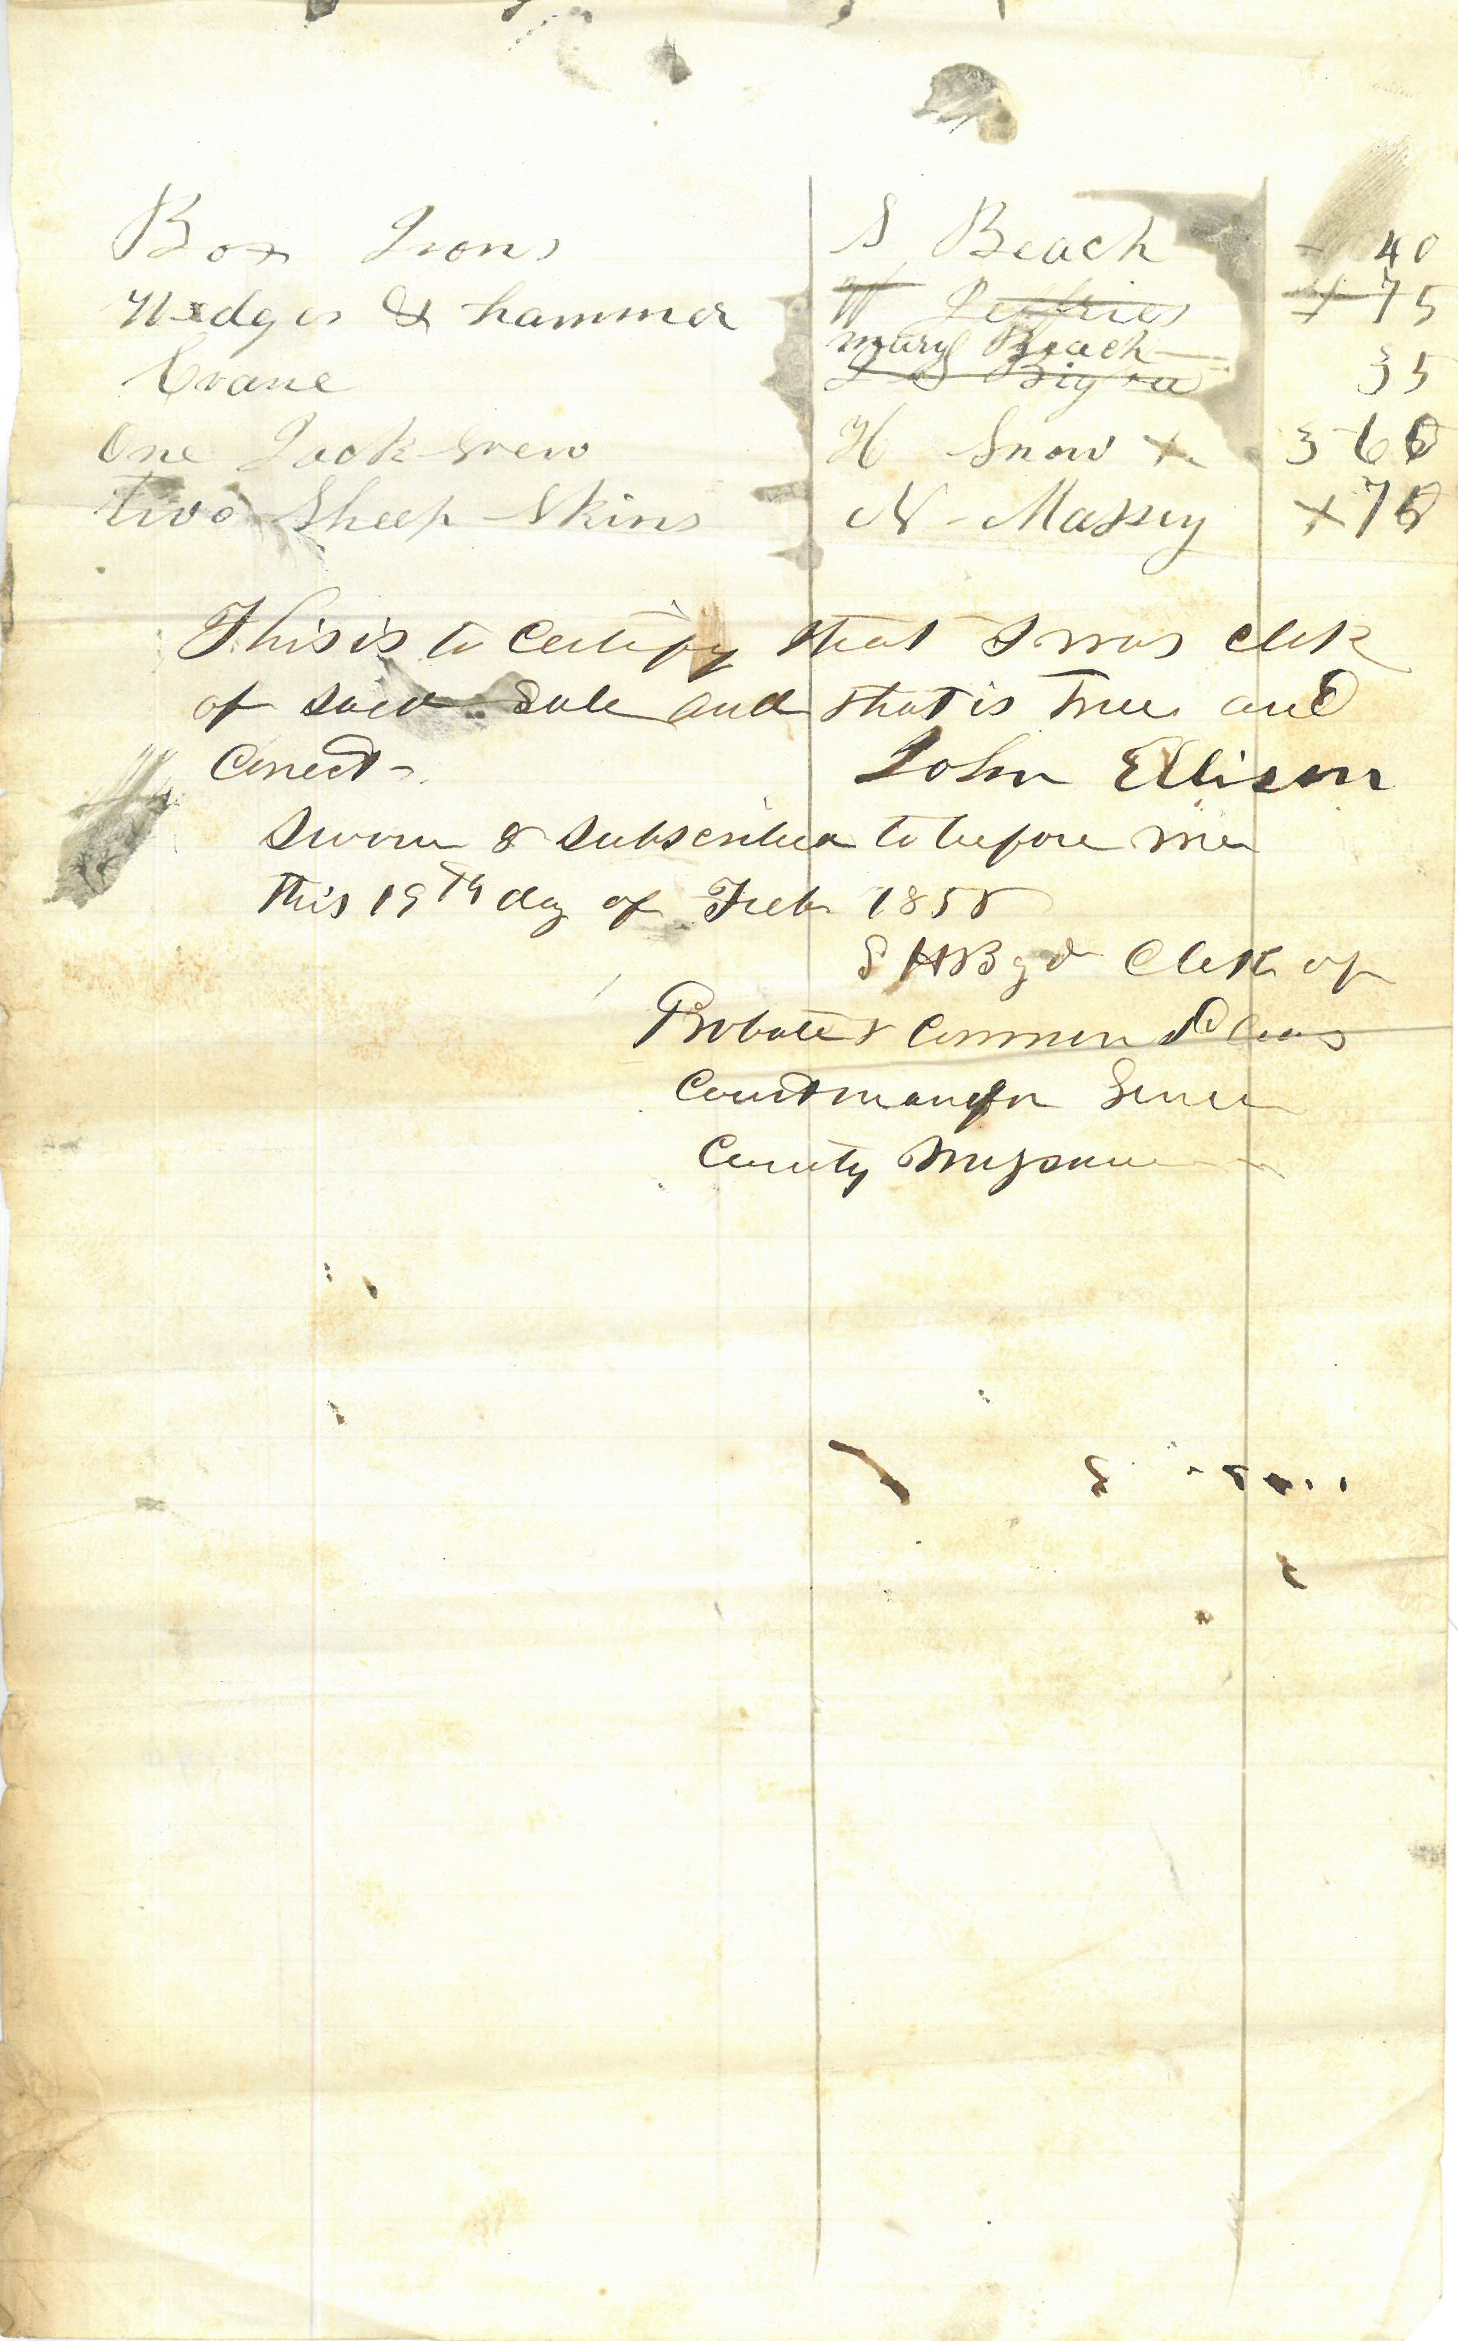 Box Irons S Beach - 40
Wedges & hammer W Jeffries + 75
Mary Beach
Crane 35
One Jack Screw H Snow x 3 60
Two Sheep Skins N Massey x 70
This is to Certify that I was Clerk
of said Sale and that is True and
Correct John Ellison
Sworn & Subscribed to before me
this 19th day of Feb 1858
S H Clerk of
Probate & Common Pleas
Court County Missouri